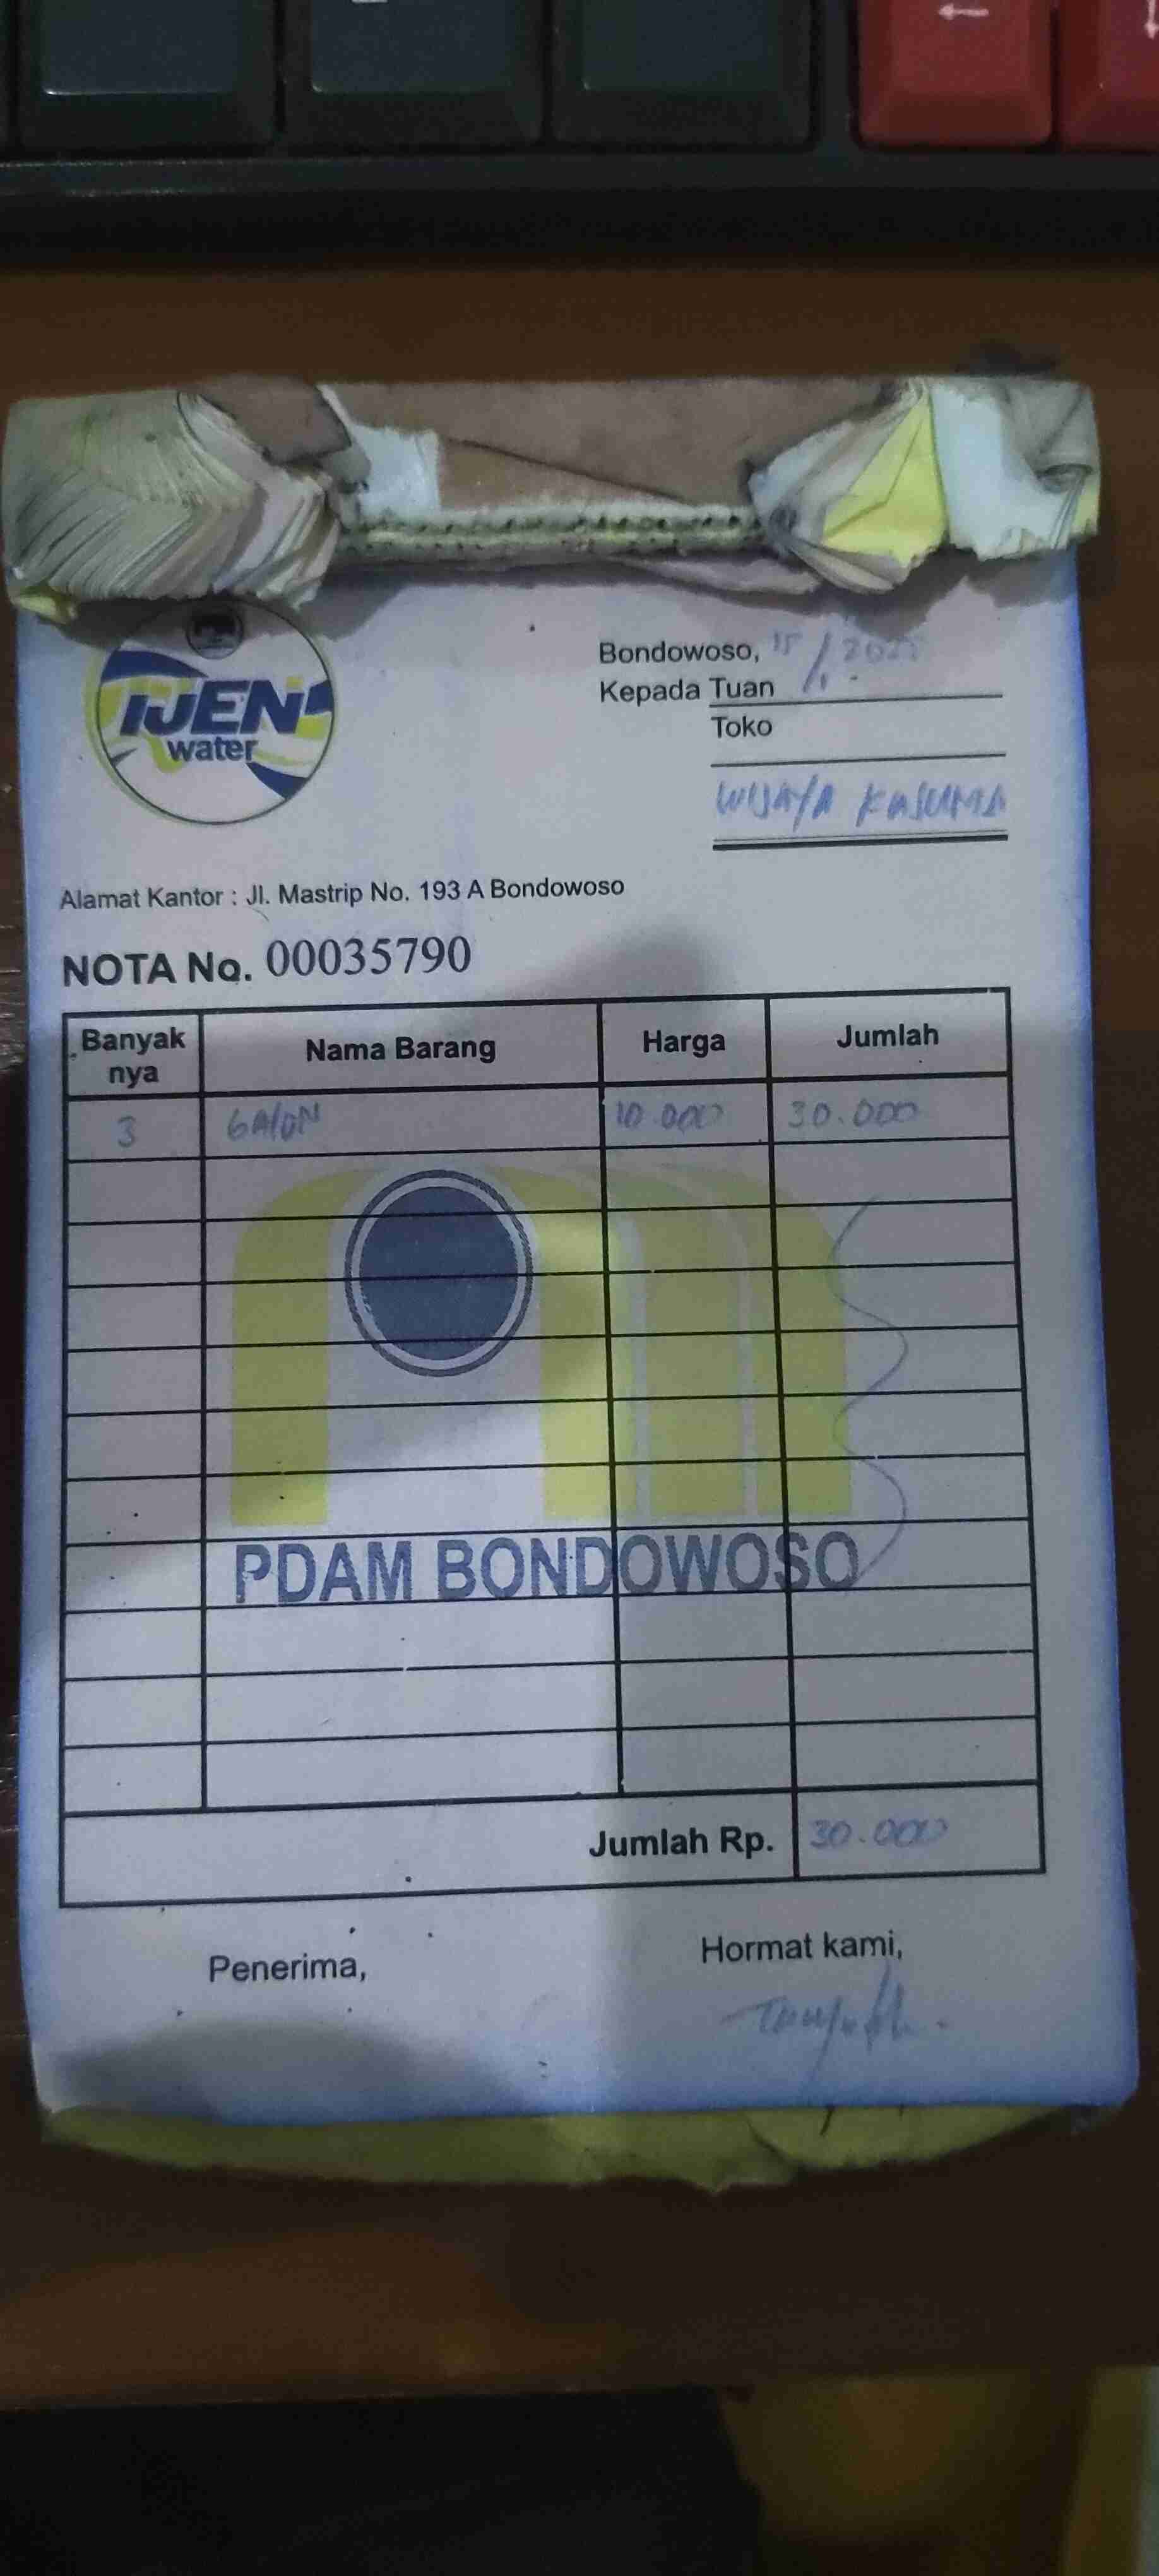 IJEN
water
Bondowoso, 15/1. 2025
Kepada Tuan
Toko
WIJAYA KUSUMA
Alamat Kantor : Jl. Mastrip No. 193 A Bondowoso
NOTA No. 00035790
Banyak nya Nama Barang Harga Jumlah
3 GALON 10.000 30.000
PDAM BONDOWOSO
Jumlah Rp. 30.000
Penerima, Hormat kami,